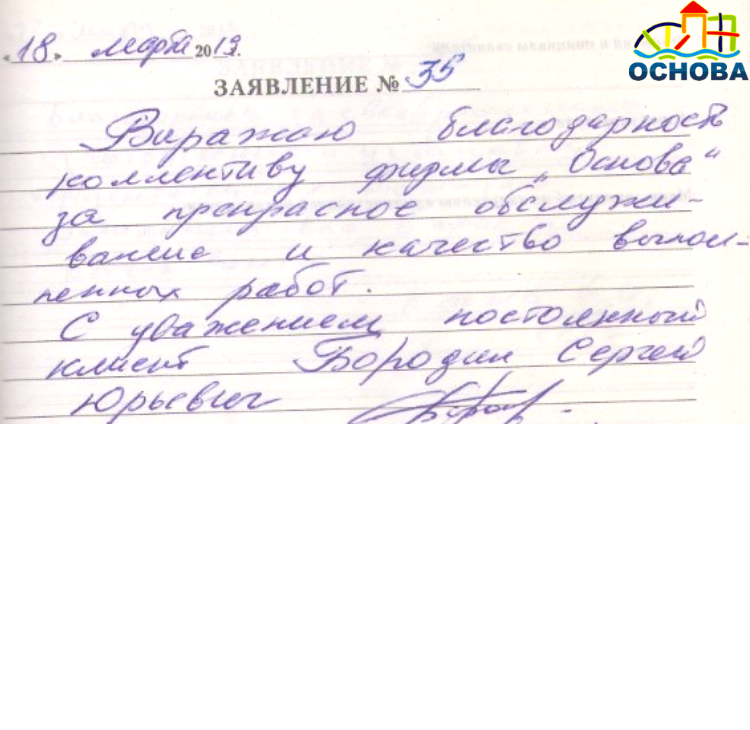 ОСНОВА
«18» марта 2019г.
ЗАЯВЛЕНИЕ № 35
Выражаю благодарность
коллективу фирмы „Основа“
за прекрасное обслужи-
вание и качество выпол-
ненных работ.
С уважением, постоянный
клиент Бородин Сергей
Юрьевич